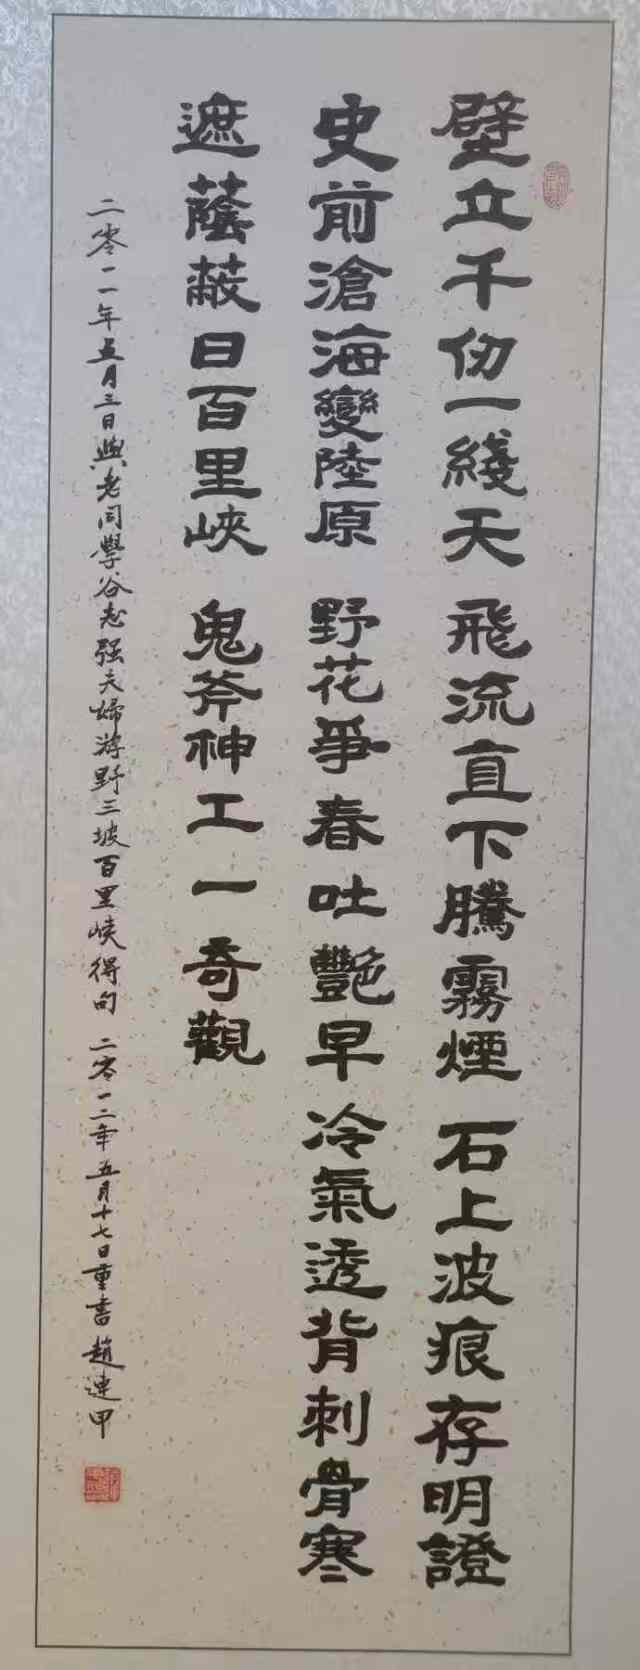 壁立千仞一綫天 飛流直下騰霧煙 石上波痕存明證
史前滄海變陸原 野花爭春吐艷早 冷氣透背刺骨寒
遮蔭蔽日百里峽 鬼斧神工一奇觀
二零一一年五月三日與老同學谷志强夫婦游野三坡百里峽得句 二零一二年五月十七日重書 趙連甲